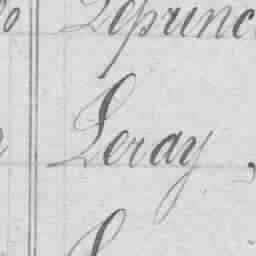 Leprinc
Leray,